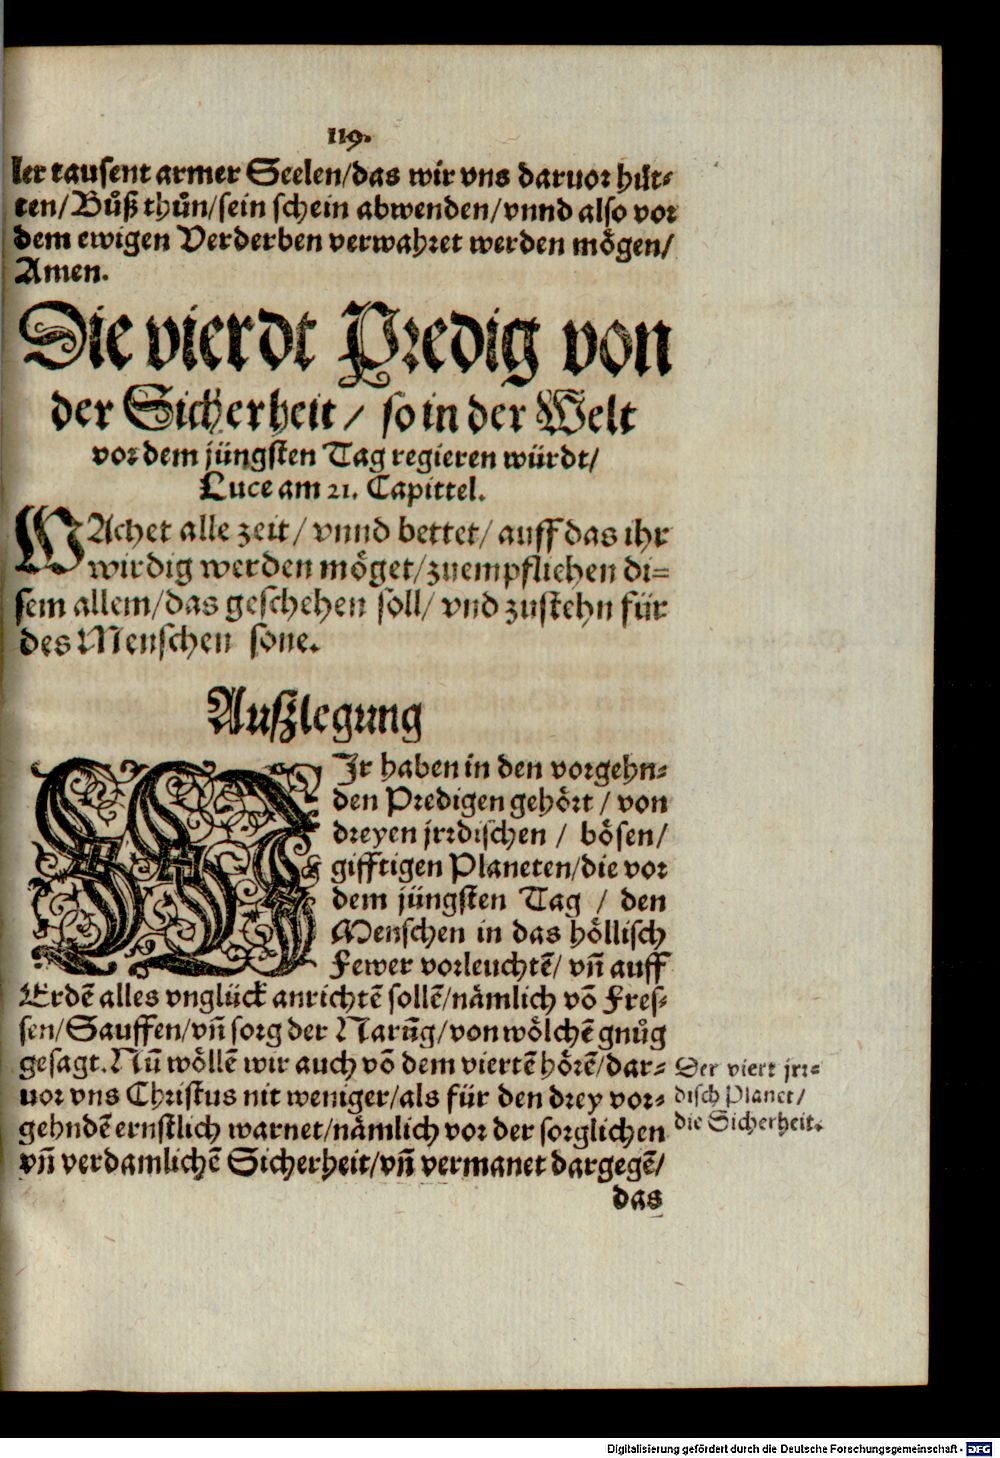 119.
ler tausent armer Seelen/das wir vns daruor hüt-
ten/Bůß thůn/sein schein abwenden/vnnd also vor
dem ewigen Verderben verwahret werden mögen/
Amen.
Die vierdt Predig von
der Sicherheit/ so in der Welt
vor dem jüngsten Tag regieren würdt/
Luce am 21. Capittel.
WAchet alle zeit/ vnnd bettet/ auff das ihr
wirdig werden möget/zuempfliehen di=
sem allem/das geschehen soll/ vnd zustehn für
des Menschen sone.
Außlegung
WIr haben in den vorgehn-
den Predigen gehört / von
dreyen jrrdischen / bösen/
gifftigen Planeten/die vor
dem jüngsten Tag / den
Menschen in das höllisch
Fewer vorleuchtẽ/ vñ auff
Erdẽ alles vnglück anrichtẽ sollẽ/nämlich võ Fres-
sen/Sauffen/vñ sorg der Narũg/von wölchẽ gnůg
gesagt. Nũ wöllẽ wir auch võ dem viertẽ hörẽ/dar-
uor vns Christus nit weniger/als für den drey vor-
gehndẽ ernstlich warnet/nämlich vor der sorglichen
vñ verdamlichẽ Sicherheit/vñ vermanet dargegẽ/
das
Der viert jrr=
disch Planet/
die Sicherheit.
Digitalisierung gefördert durch die Deutsche Forschungsgemeinschaft - DFG